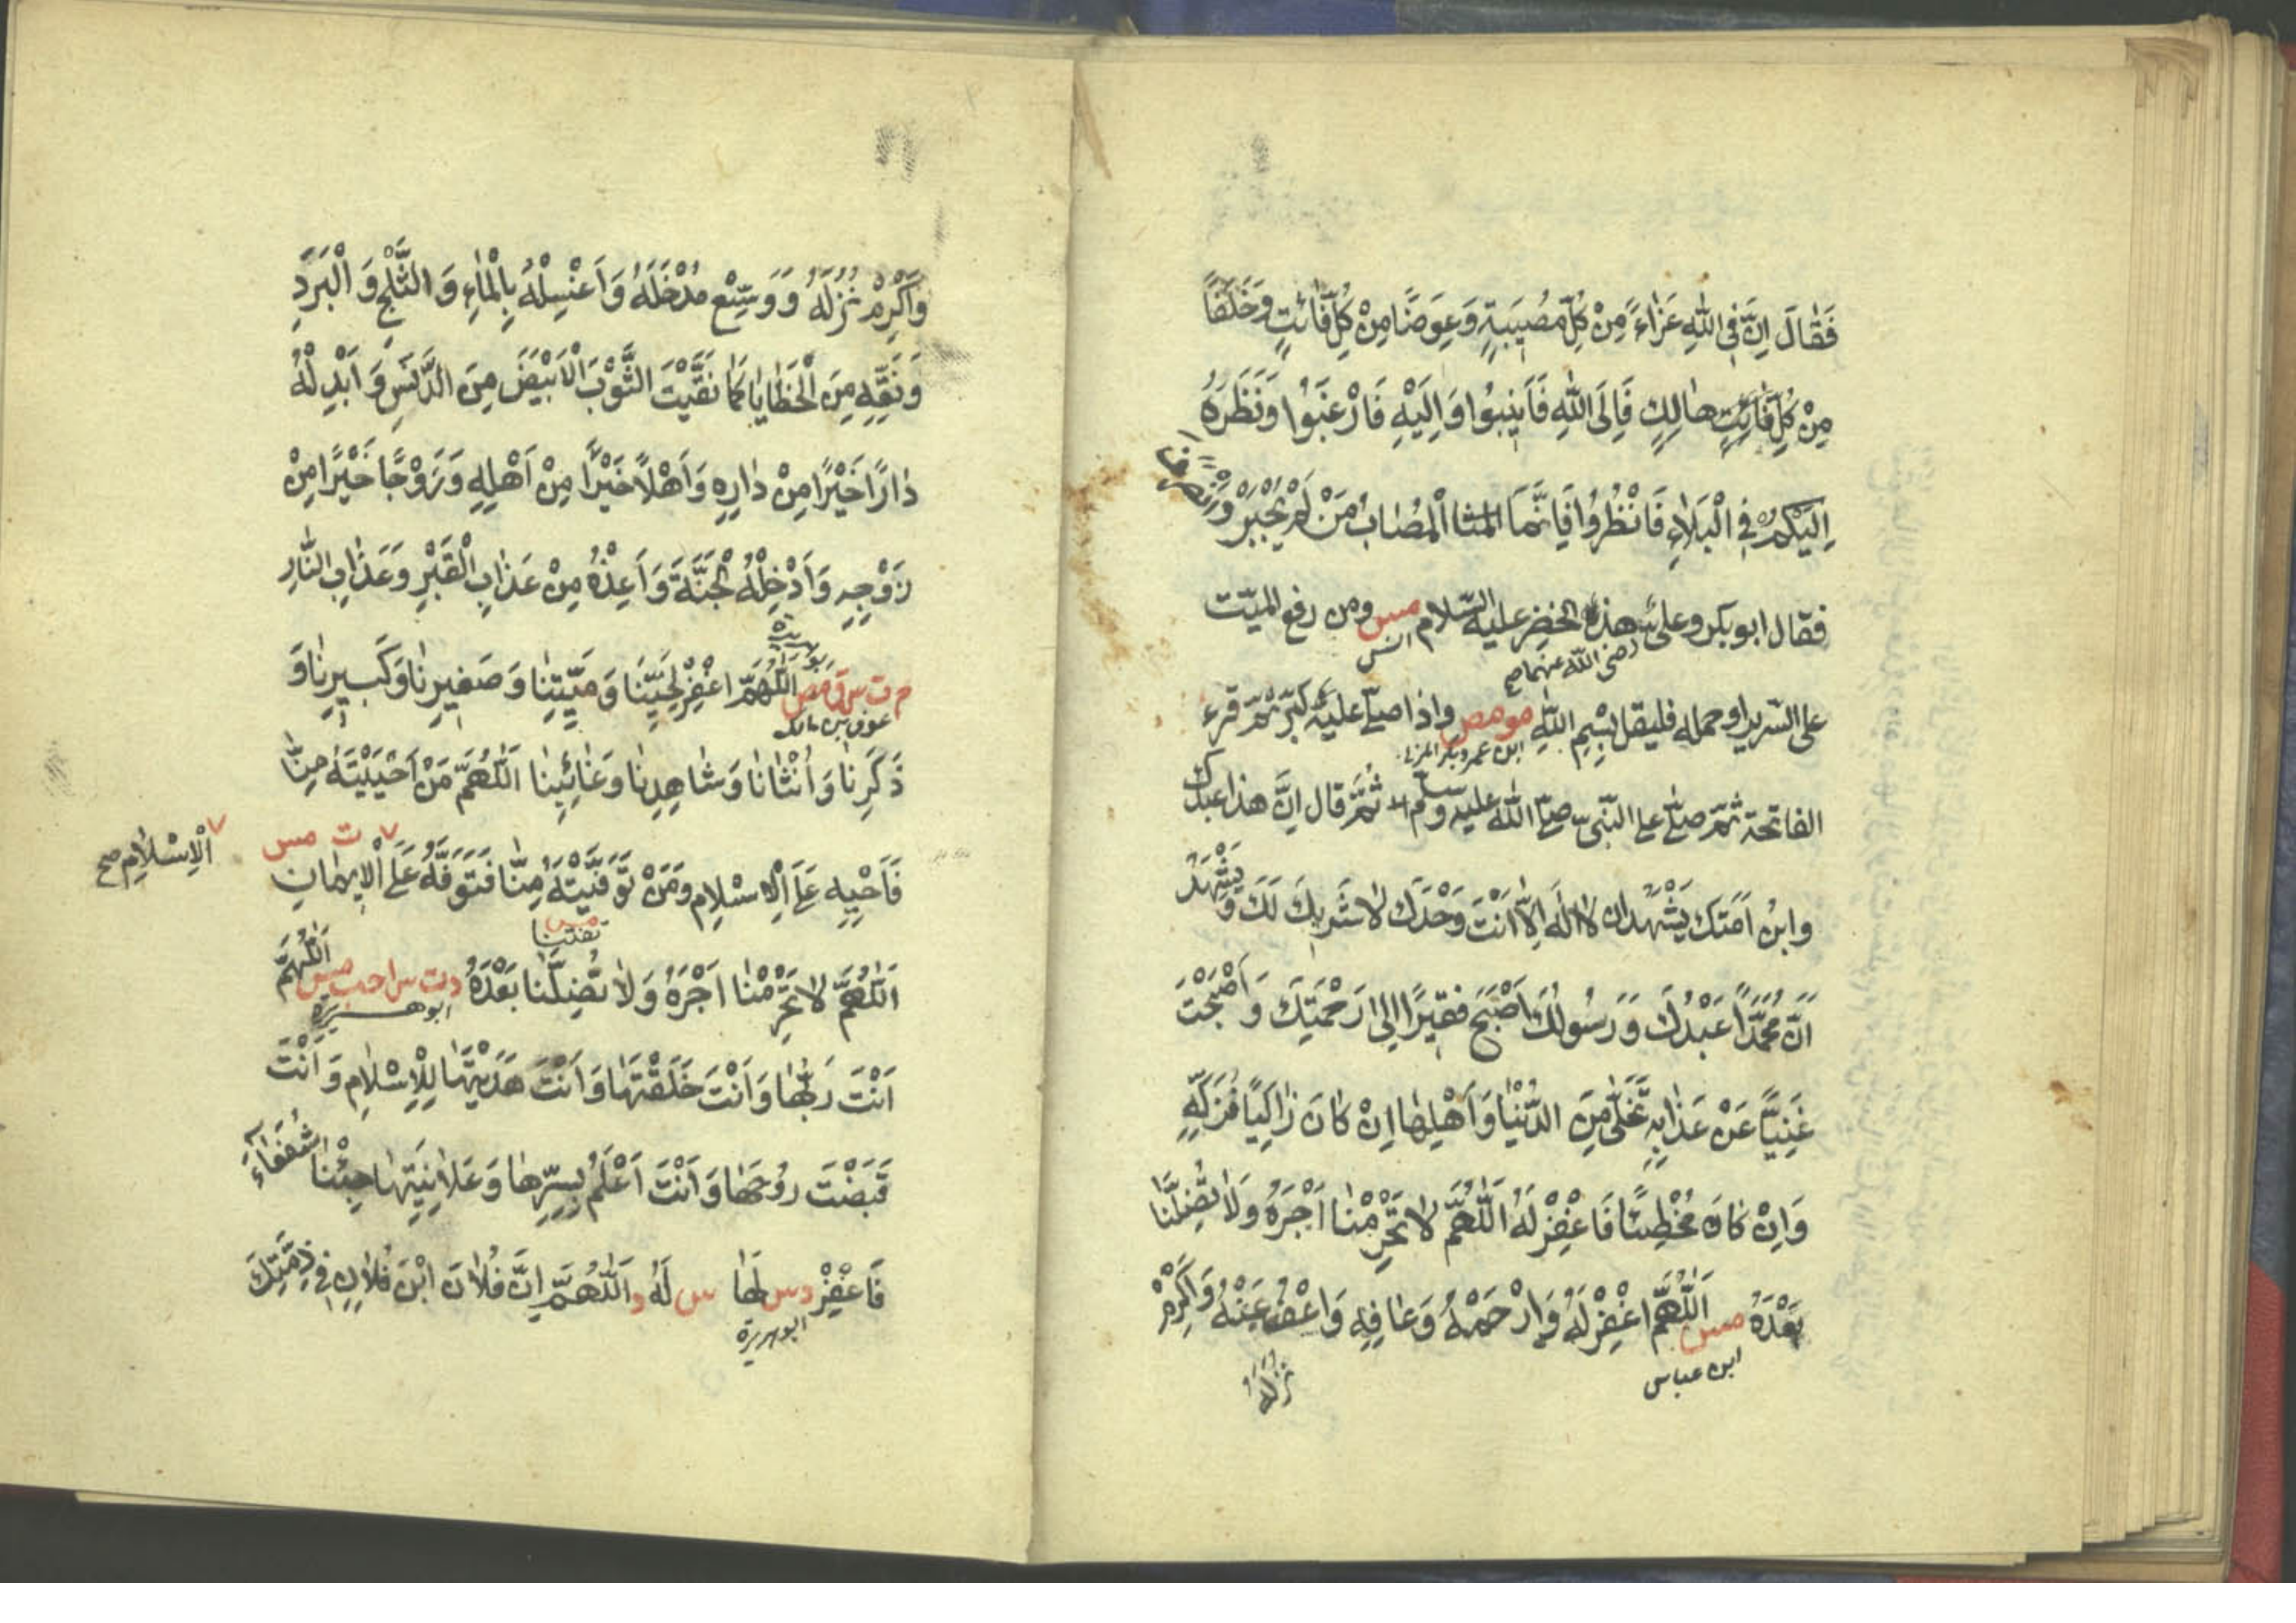 فَقَالَ اِنَّ فِي اللّٰهِ عَزَاءً مِنْ كُلِّ مُصِيبَةٍ وَعِوَضًا مِنْ كُلِّ فَائِتٍ وَخَلَفًا
مِنْ كُلِّ هَالِكٍ فَاِلَى اللّٰهِ فَاَنِيبُوا وَاِلَيْهِ فَارْغَبُوا وَنَظَرُهُ
اِلَيْكُمْ فِي الْبَلَاءِ فَانْظُرُوا فَاِنَّمَا الْمُصَابُ مَنْ لَمْ يُجْبَرْ وَانْصَرَفَ
فقال ابو بكر وعلى هذا الخضر عليه السّلام مس ومن رفع الميّت
رضى اللّه عنهما صح
انس
على السّرير او حمله فليقل بِسْمِ اللّٰهِ مو مص واذا صلّى عليه كبّر ثمّ قرء
ابن عمر وبكر المزنى
الفاتحة ثمّ صلّى على النّبىّ صلّى اللّٰه عليه وسلم ثُمَّ قال اِنَّ هذا عبدك
وابنُ اَمَتك يَشْهَدُ ان لَا اِلٰهَ اِلَّا اَنْتَ وَحْدَكَ لَا شَرِيكَ لَكَ وَيَشْهَدُ
اَنَّ مُحَمَّدًا عَبْدُكَ وَرَسُولُكَ اَصْبَحَ فَقِيرًا اِلٰى رَحْمَتِكَ وَاَصْبَحْتَ
غَنِيًّا عَنْ عَذَابِهِ تَخَلّٰى مِنَ الدُّنْيَا وَاَهْلِهَا اِنْ كَانَ زَاكِيًا فَزَكِّهِ
وَاِنْ كَانَ مُخْطِئًا فَاغْفِرْ لَهُ اَللّٰهُمَّ لَا تَحْرِمْنَا اَجْرَهُ وَلَا تُضِلَّنَا
بَعْدَهُ مس اَللّٰهُمَّ اغْفِرْ لَهُ وَارْحَمْهُ وَعَافِهِ وَاعْفُ عَنْهُ وَاَكْرِمْ
ابن عباس
نُزُلَهُ
وَاَكْرِمْ نُزُلَهُ وَوَسِّعْ مُدْخَلَهُ وَاغْسِلْهُ بِالْمَاءِ وَالثَّلْجِ وَالْبَرَدِ
وَنَقِّهِ مِنَ الْخَطَايَا كَمَا نَقَّيْتَ الثَّوْبَ الْاَبْيَضَ مِنَ الدَّنَسِ وَاَبْدِلْهُ
دَارًا خَيْرًا مِنْ دَارِهِ وَاَهْلًا خَيْرًا مِنْ اَهْلِهِ وَزَوْجًا خَيْرًا مِنْ
زَوْجِهِ وَاَدْخِلْهُ الْجَنَّةَ وَاَعِذْهُ مِنْ عَذَابِ الْقَبْرِ وَعَذَابِ النَّارِ
م ت س ق مص اَللّٰهُمَّ اغْفِرْ لِحَيِّنَا وَمَيِّتِنَا وَصَغِيرِنَا وَكَبِيرِنَا وَ
عوف بن مالك
ذَكَرِنَا وَاُنْثَانَا وَشَاهِدِنَا وَغَائِبِنَا اَللّٰهُمَّ مَنْ اَحْيَيْتَهُ مِنَّا
ت مس
اَلْاِسْلَامِ صح
فَاَحْيِهِ عَلَى الْاِسْلَامِ وَمَنْ تَوَفَّيْتَهُ مِنَّا فَتَوَفَّهُ عَلَى الْاِيمَانِ
تفتنا
اَللّٰهُمَّ لَا تَحْرِمْنَا اَجْرَهُ وَلَا تُضِلَّنَا بَعْدَهُ د ت س ا حب مس اَللّٰهُمَّ
ابو هريرة
اَنْتَ رَبُّهَا وَاَنْتَ خَلَقْتَهَا وَاَنْتَ هَدَيْتَهَا لِلْاِسْلَامِ وَاَنْتَ
قَبَضْتَ رُوحَهَا وَاَنْتَ اَعْلَمُ بِسِرِّهَا وَعَلَانِيَتِهَا جِئْنَا شُفَعَاءَ
فَاغْفِرْ د س لَهَا س لَهُ د اَللّٰهُمَّ اِنَّ فُلَانَ ابْنَ فُلَانٍ فِي ذِمَّتِكَ
ابو هريرة